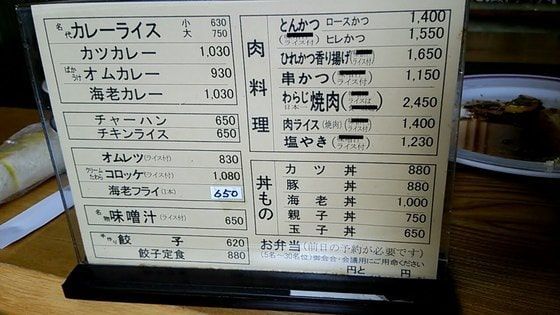 名代 カレーライス 小 630
大 750
カツカレー 1,030
ばかうけ オムカレー 930
海老カレー 1,030
チャーハン 650
チキンライス 650
オムレツ(ライス付) 830
クリームたわら コロッケ(ライス付) 1,080
海老フライ(1本) 650
名物 味噌汁(ライス付) 650
手作り 餃子 620
餃子定食 880
肉料理
とんかつ ロースかつ 1,400
(ライス付) ヒレかつ 1,550
ひれかつ香り揚げ(ライス付) 1,650
串かつ(ライス付) 1,150
わらじ焼肉 2,450
日本一
肉ライス(焼肉)(ライス付) 1,400
塩やき(ライス付) 1,230
丼もの
カツ丼 880
豚丼 880
海老丼 1,000
親子丼 750
玉子丼 650
お弁当(前日の予約が必要です)
(5名〜30名位)御会合・会議用にご用命ください
円と 円